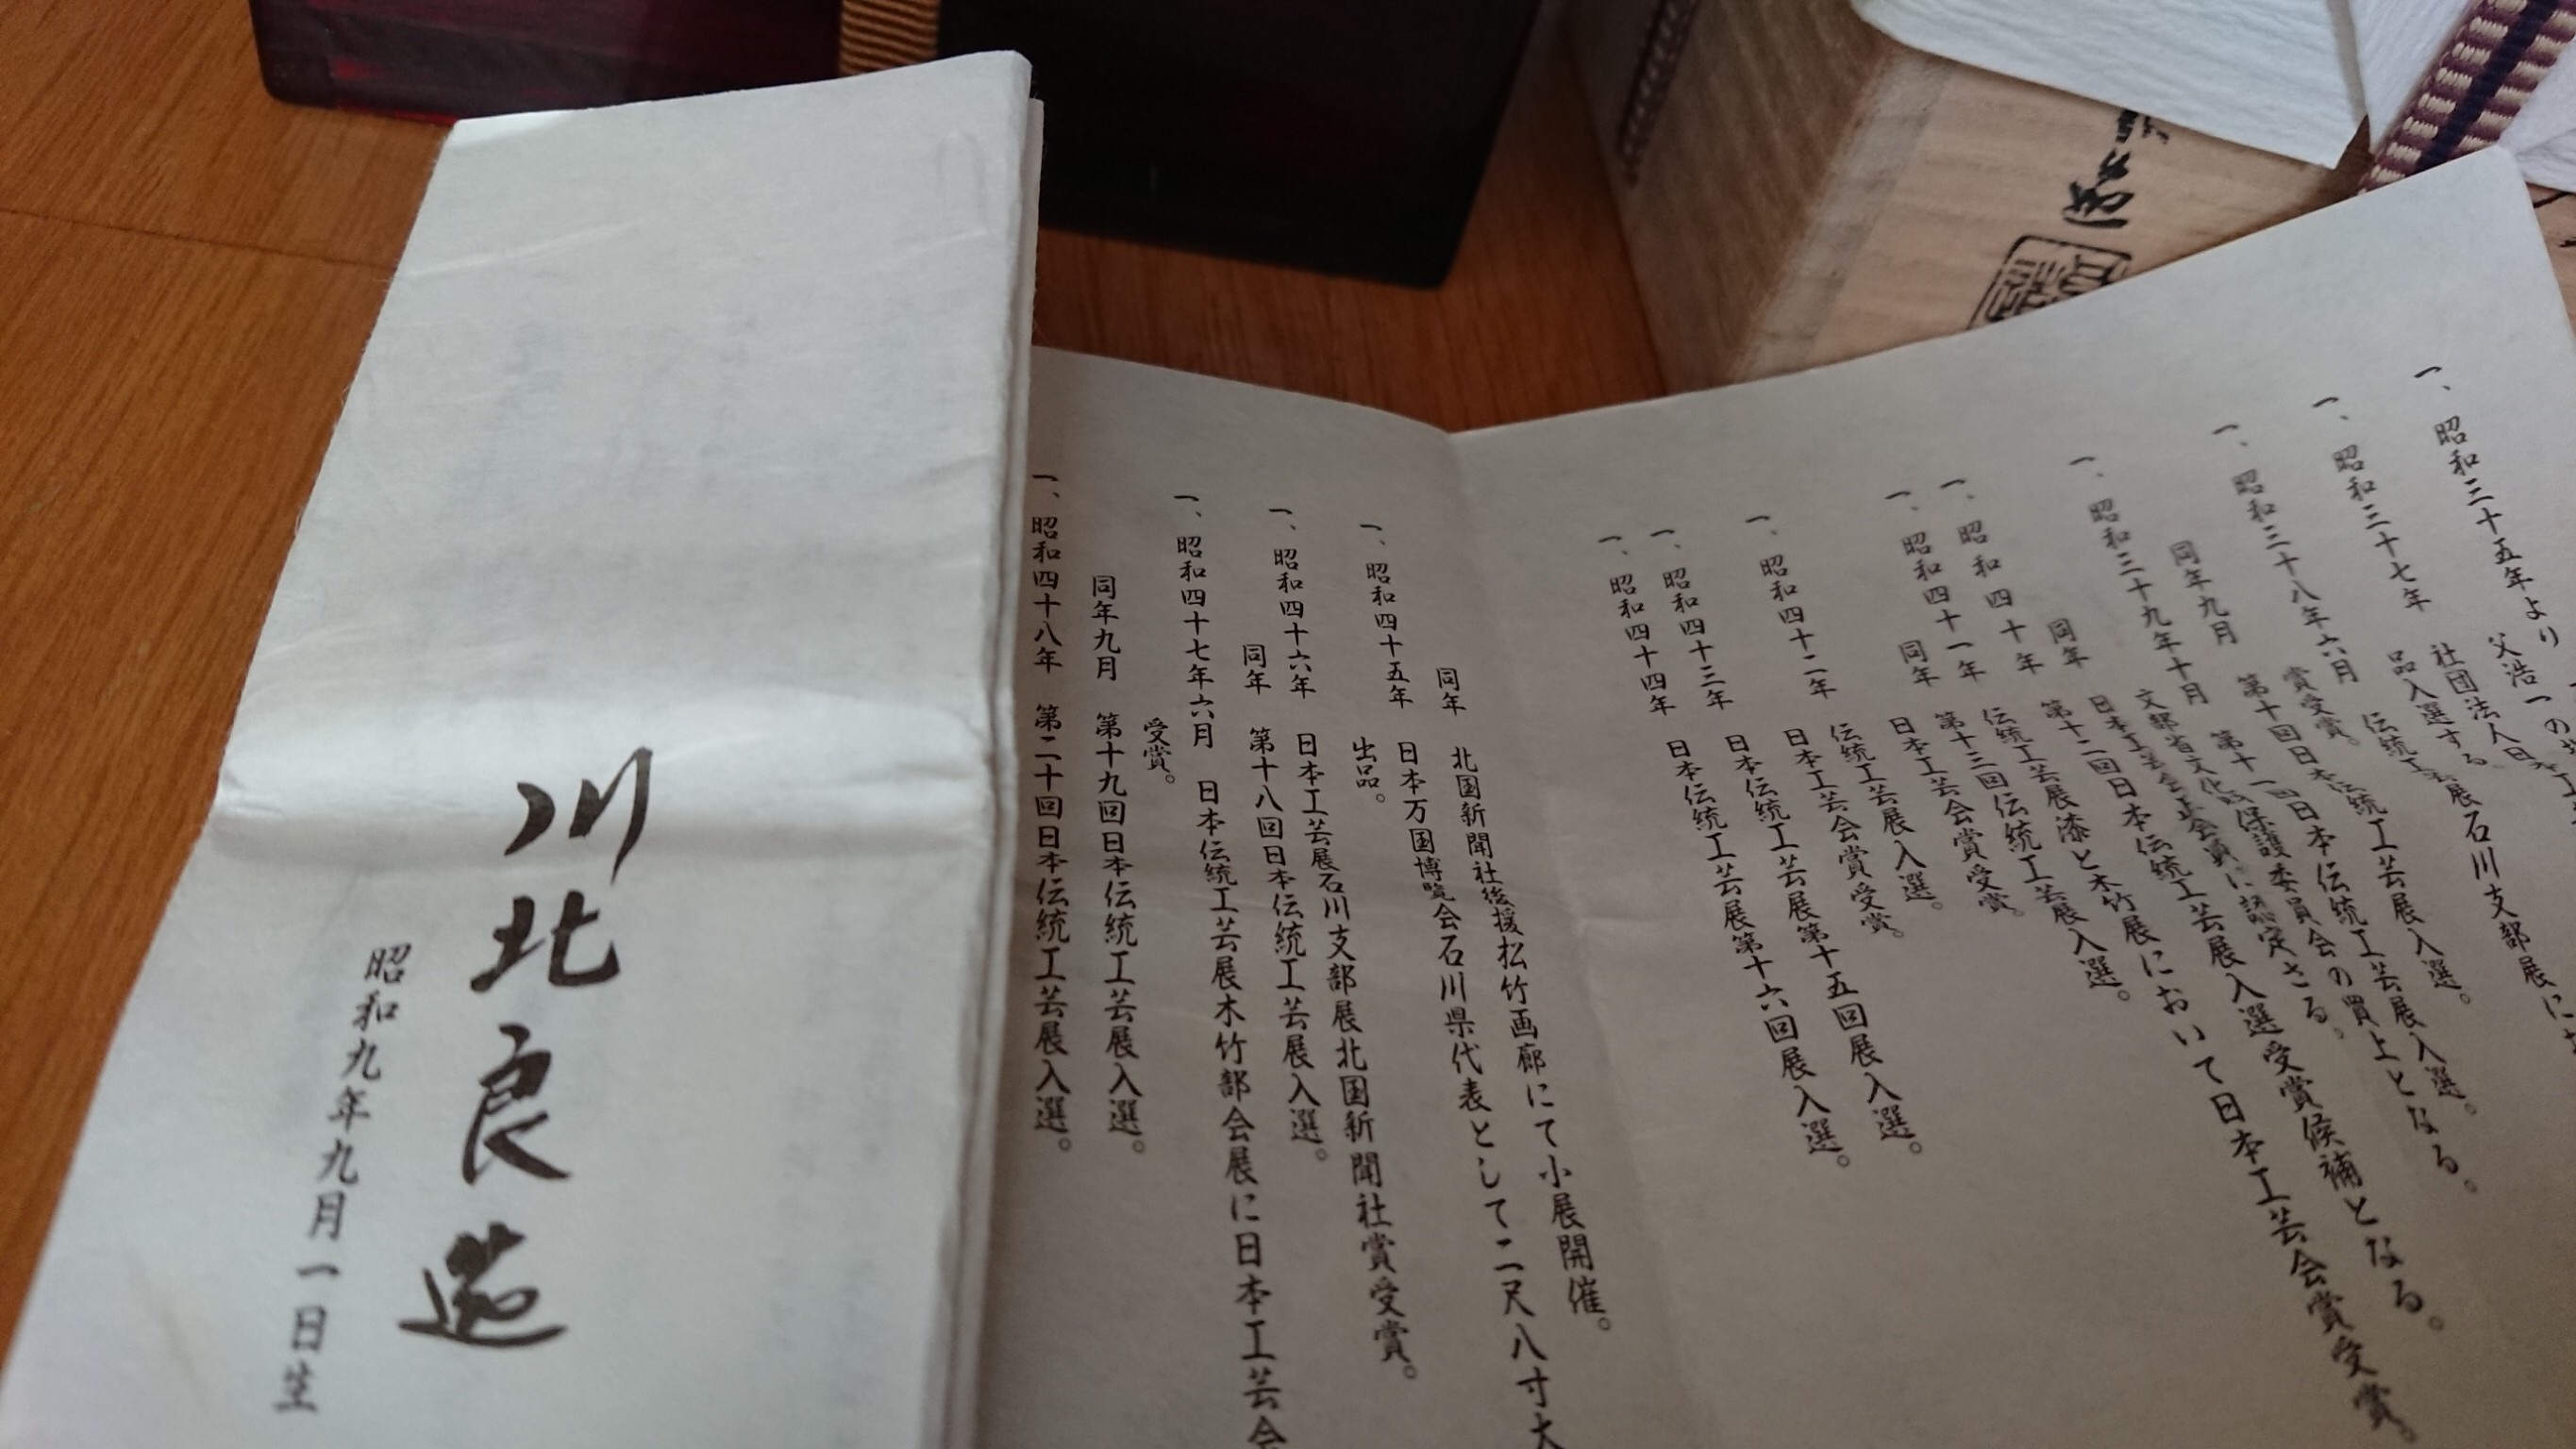 一、昭和三十五年より 父浩一の
一、昭和三十七年 社団法人日本工芸展石川支部展に
品入選する
一、昭和三十八年六月 伝統工芸展石川支部展に
賞受賞。
同年九月 第十回日本伝統工芸展入選。
一、昭和三十九年十月 第十一回日本伝統工芸展入選。
文部省文化財保護委員会の買上となる。
日本工芸会正会員に認定さる。
一、昭和四十年 第十二回日本伝統工芸展入選受賞候補となる。
同年 伝統工芸展漆と木竹展において日本工芸会賞受賞。
一、昭和四十一年 第十三回伝統工芸展入選。
同年 日本工芸会賞受賞。
伝統工芸展入選。
一、昭和四十二年 日本工芸会賞受賞。
一、昭和四十三年 日本伝統工芸展第十五回展入選。
一、昭和四十四年 日本伝統工芸展第十六回展入選。
同年 北国新聞社後援松竹画廊にて小展開催。
一、昭和四十五年 日本万国博覧会石川県代表として二尺八寸大
出品。
一、昭和四十六年 日本工芸展石川支部展北国新聞社賞受賞。
同年 第十八回日本伝統工芸展入選。
一、昭和四十七年六月 日本伝統工芸展木竹部会展に日本工芸会
受賞。
同年九月 第十九回日本伝統工芸展入選。
一、昭和四十八年 第二十回日本伝統工芸展入選。
川北良造
昭和九年九月一日生